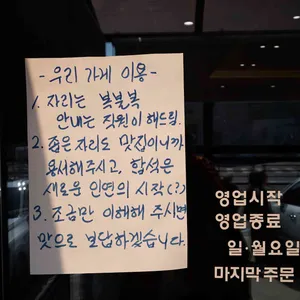 - 우리 가게 이용 -
1. 자리는 복불복
안내는 직원이 해드림.
2. 좁은 자리도 맛집이니까
용서해주시고, 합석은
새로운 인연의 시작(?)
3. 조금만 이해해 주시면
맛으로 보답하겠습니다.
영업시작
영업종료
일·월요일
마지막주문